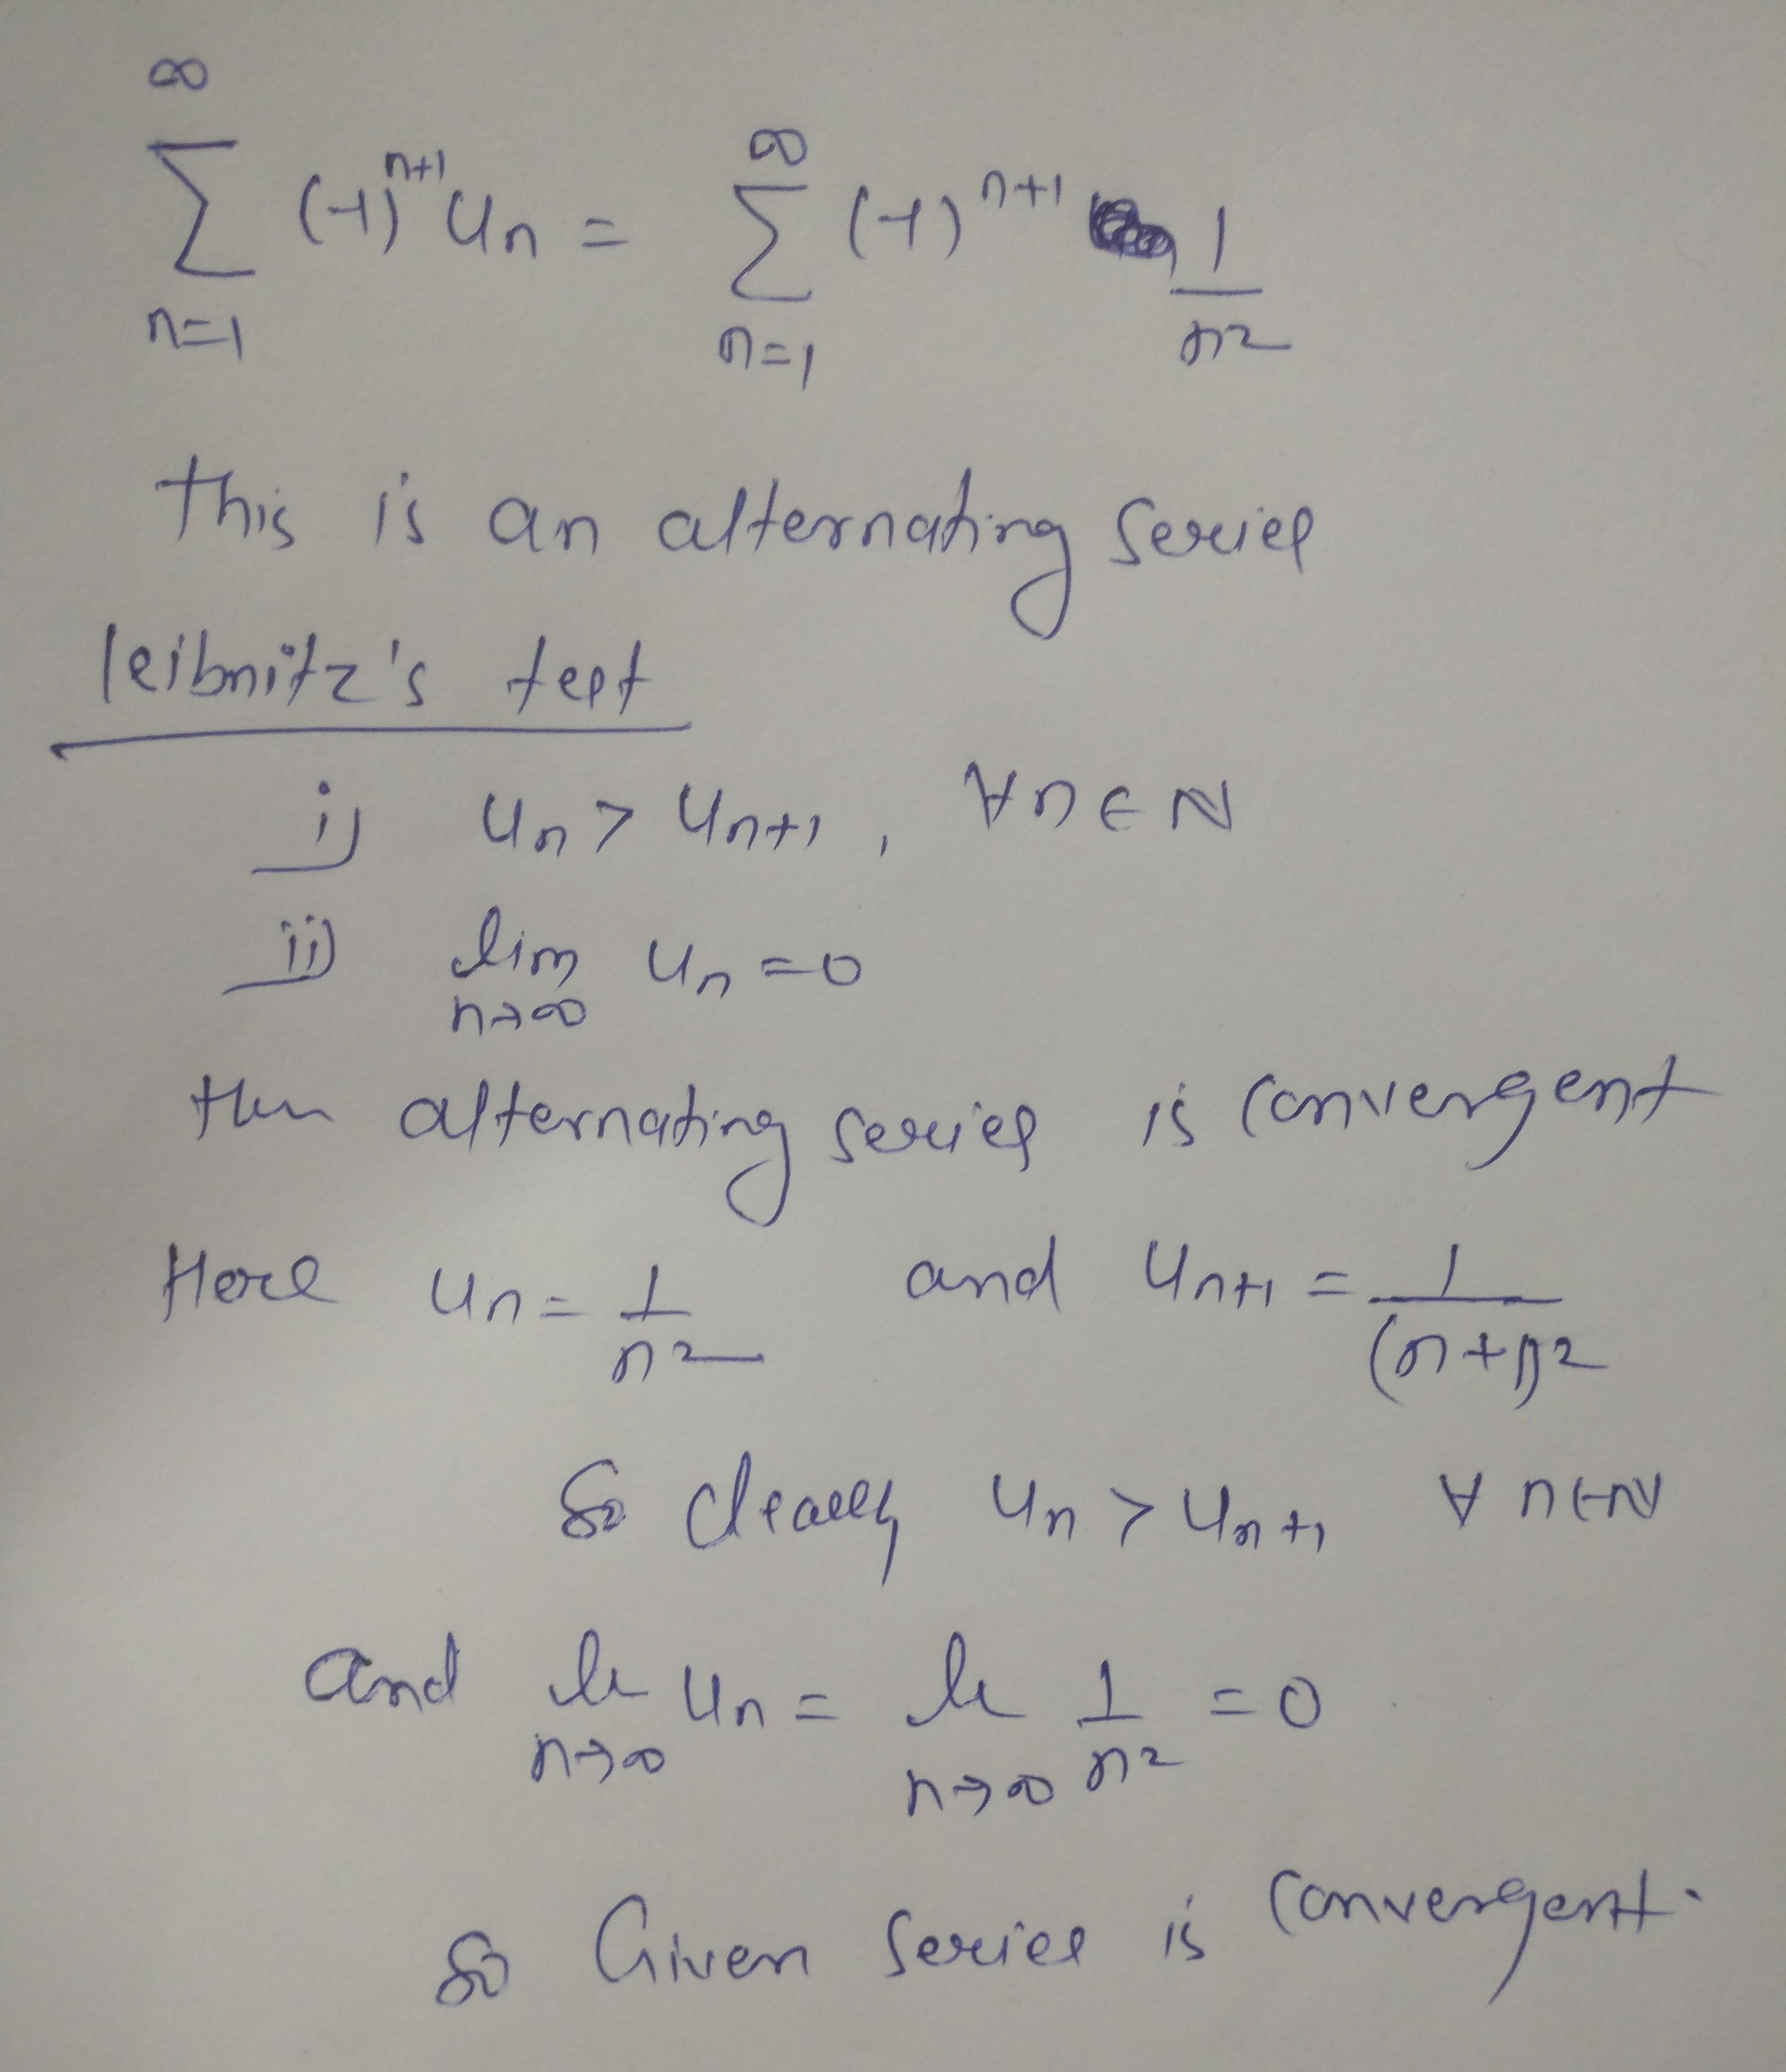 ∞ ∑ n=1 (-1)^{n+1} u_n = ∞ ∑ n=1 (-1)^{n+1} 1/n²
this is an alternating series
leibnitz's test
i) u_n > u_{n+1} , ∀ n ∈ N
ii) lim n→∞ u_n = 0
then alternating series is convergent
Here u_n = 1/n² and u_{n+1} = 1/(n+1)²
So clearly u_n > u_{n+1} ∀ n ∈ N
and li n→∞ u_n = li n→∞ 1/n² = 0
So Given series is convergent.